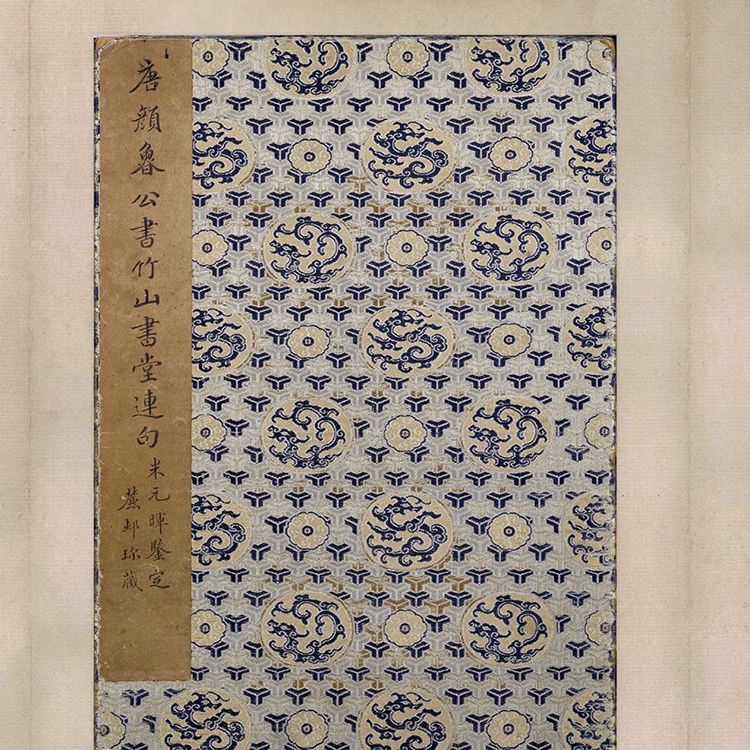 唐顔魯公書竹山書堂連句
米元暉鑒定
麓邨珍藏